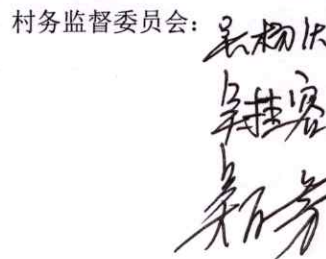 村务监督委员会：吴杨
吴桂容
吴百芳